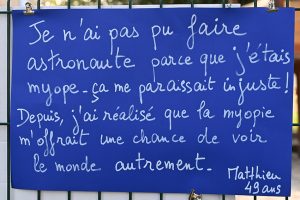 Je n'ai pas pu faire
astronaute parce que j'étais
myope - ça me paraissait injuste !
Depuis, j'ai réalisé que la myopie
m'offrait une chance de voir
le monde autrement.
Matthieu
49 ans